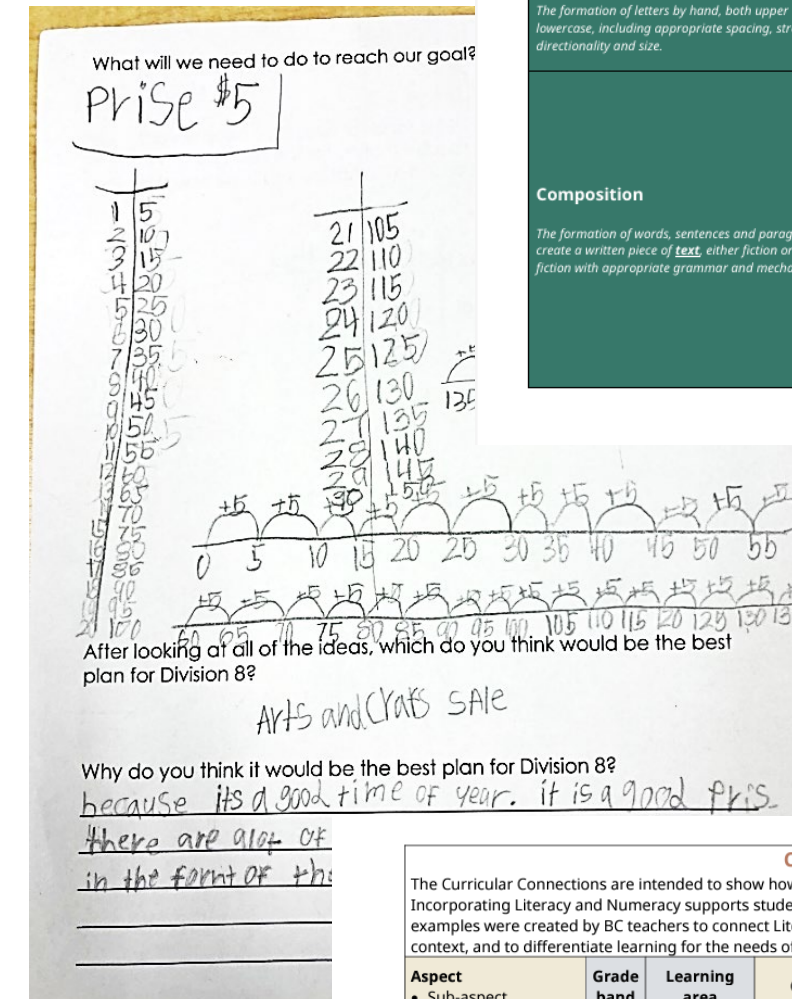 What will we need to do to reach our goal?
Prise $5
1 5
2 10
3 15
4 20
5 25
6 30
7 35
8 40
9 45
10 50
11 55
12 60
13 65
14 70
15 75
16 80
17
18
19 95
20 100
21 105
22 110
23 115
24 120
25 125
26 130
27 135
28 140
29 145
30 150
+5
135
+5 +5 +5 +5 +5 +5 +5 +5 +5 +5 +5
0 5 10 15 20 25 30 35 40 45 50 55
+5 +5 +5 +5 +5 +5 +5 +5 +5 +5 +5 +5 +5 +5 +5
60 65 70 75 80 85 90 95 100 105 110 115 120 125 130 13
After looking at all of the ideas, which do you think would be the best
plan for Division 8?
Arts and Crats SAle
Why do you think it would be the best plan for Division 8?
because its a good time of year. it is a good pris
there are alot of
in the fornt of the
The formation of letters by hand, both upper
lowercase, including appropriate spacing, str
directionality and size.
Composition
The formation of words, sentences and parag
create a written piece of text, either fiction or
fiction with appropriate grammar and mecha
The Curricular Connections are intended to show how
Incorporating Literacy and Numeracy supports stude
examples were created by BC teachers to connect Lit
context, and to differentiate learning for the needs of
Aspect Grade Learning
• Sub-aspect band area